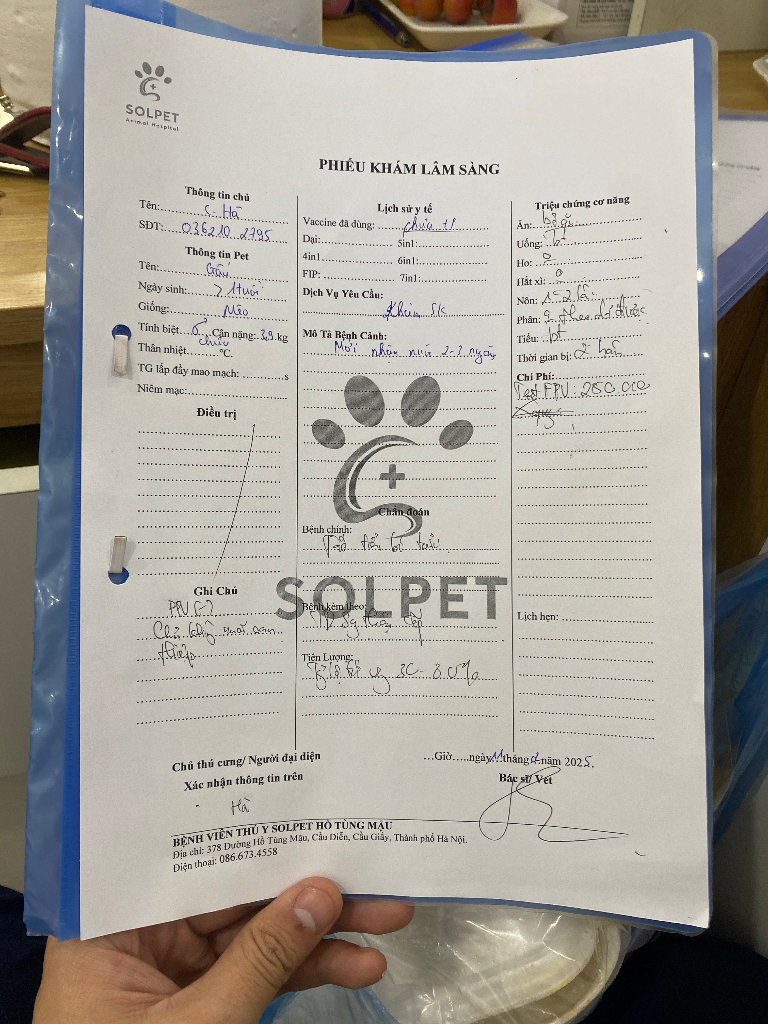 SOLPET
Animal Hospital
PHIẾU KHÁM LÂM SÀNG
Thông tin chủ
Tên: C. Hà
SĐT: 036210 2795
Thông tin Pet
Tên: Gấu
Ngày sinh: > 1 tuổi
Giống: Mèo
Tính biệt ♂ Cận nặng: 3,9 kg
chưa
Thân nhiệt °C.
TG lấp đầy mao mạch: s
Niêm mạc:
Điều trị
Ghi Chú
FPV (-)
Chủ không muốn can
thiệp
Lịch sử y tế
Vaccine đã dùng: chưa
Dại: 5in1:
4in1 6in1:
FIP: 7in1:
Dịch Vụ Yêu Cầu:
Khám SK
Mô Tả Bệnh Cảnh:
Mới nhận nuôi 2-3 ngày
Chẩn đoán
Bệnh chính:
SOLPET
Bệnh kèm theo:
Tiên Lượng:
Triệu chứng cơ năng
Ăn: bỏ ăn
Uống: bt
Ho: 0
Hắt xì: 0
Nôn: 1-2 lần
Phân: theo dõi được
Tiểu: bt
Thời gian bị:
Chi Phí:
Test FPV: 250.000
Lịch hẹn:
Chủ thú cưng/ Người đại diện
Xác nhận thông tin trên
Hà
…Giờ…..ngày 11 tháng 2 năm 2025.
Bác sĩ/ Vet
BỆNH VIỆN THÚ Y SOLPET HỒ TÙNG MẬU
Địa chỉ: 378 Đường Hồ Tùng Mậu, Cầu Diễn, Cầu Giấy, Thành phố Hà Nội.
Điện thoại: 086.673.4558